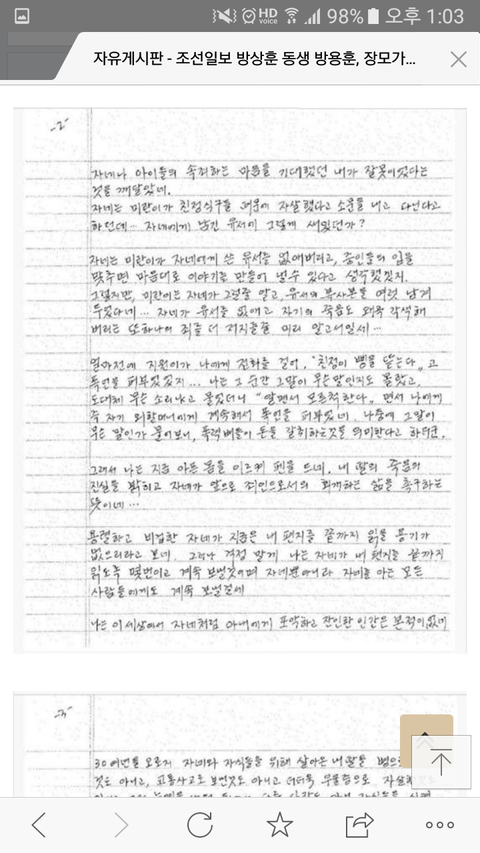 98% 오후 1:03
자유게시판 - 조선일보 방상훈 동생 방용훈, 장모가...
-2-
자네나 아이들의 속죄하는 마음을 기대했던 내가 잘못이었다는
것을 깨달았네.
자네는 미란이가 친정식구들 때문에 자살했다고 소문을 내고 다닌다고
하던데... 자네에게 남긴 유서에 그렇게 써있던가?
자네는 미란이가 자네에게 쓴 유서를 없애버리고, 증인들의 입을
맞추면 마음대로 이야기를 만들어 낼수 있다고 생각했겠지.
그렇지만, 미란이는 자네가 그럴줄 알고, 유서의 복사본을 여럿 남겨
두었다네... 자네가 유서를 없애고 자기의 죽음도 왜곡 각색해
버리는 또하나의 죄를 더 저지를줄 미리 알고서일세...
얼마전에 지원이가 나에게 전화를 걸어, "친정이 삥을 뜯는다"고
폭언을 퍼부었었지... 나는 그 순간 그말이 무슨말인지도 몰랐고,
도대체 무슨 소리냐고 물었더니 "알면서 모르척한다" 면서 나에게
즉 자기 외할머니에게 계속해서 폭언을 퍼부었네. 나중에 그말이
무슨 말인가 물어보니, 폭력배들이 돈을 갈취하는것을 의미한다고 하더군.
그래서 나는 지금 아픈 몸을 이르켜 펜을 드네. 내 딸의 죽음의
진실을 밝히고 자네가 앞으로 죄인으로서의 회개하는 삶을 촉구하는
뜻이네...
용렬하고 비겁한 자네가 지금은 내 편지를 끝까지 읽을 용기가
없으리라고 보네. 그러나 걱정 말게 나는 자네가 내 편지를 끝까지
읽도록 몇번이고 계속 보낼것이며 자네뿐아니라 자네를 아는 모든
사람들에게도 계속 보낼걸세
나는 이 세상에서 자네처럼 아내에게 포악하고 잔인한 인간은 본적이 없네
-3-
30여년을 오로지 자네와 자식들을 위해 살아온 내 딸을
것도 아니고, 교통사고로 보낸것도 아니고 더더욱 우울증으로